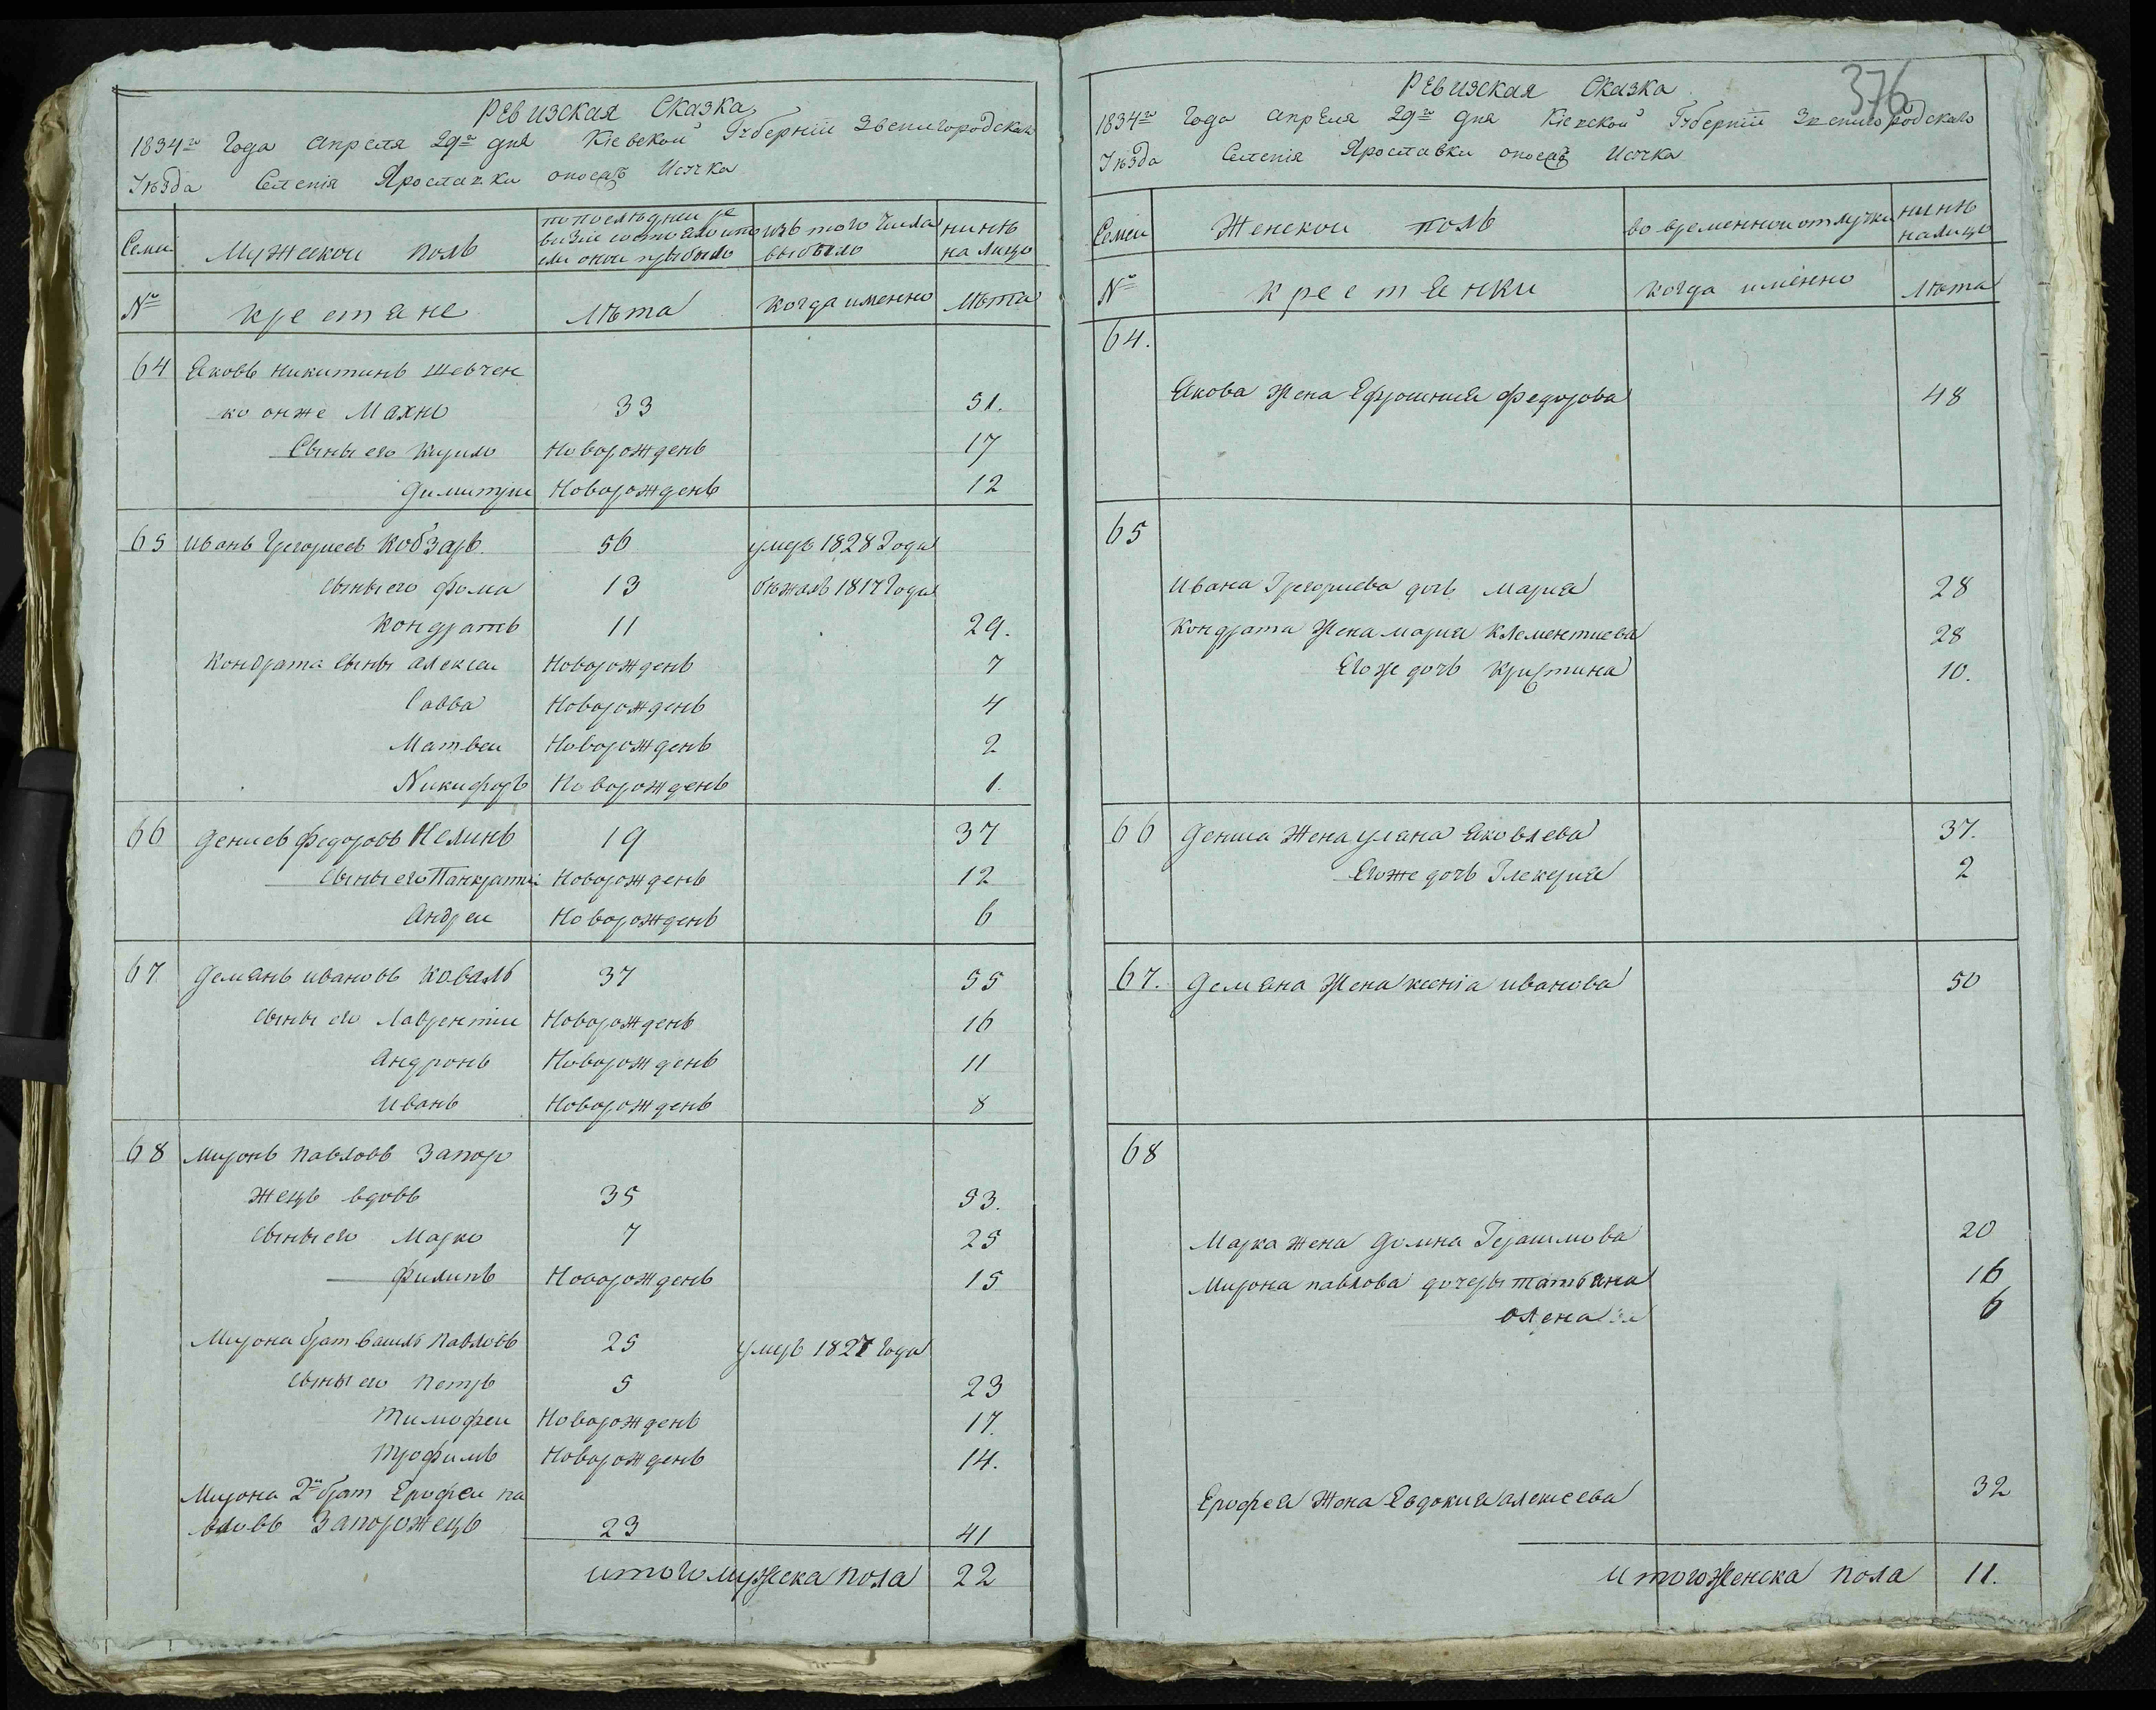 Ревизская Сказка
1834го Года Апреля 29го дня Кіевской Губерніи Звенигородскаго
Уѣзда Селенія Ярославки
Семи
Мужеской полъ
по последней ре
визіи состояло и по
сли оной прибыло
изъ того Числа
выбыло
нинѣ
на лицо
№
крестяне
лѣта
когда именно
лѣта
64 Яковъ Никитинъ Шевчен
ко онже Махно 33 51.
Сыны его Кирило Новорожденъ 17
Димитри Новорожденъ 12
65 Иванъ Грегориевъ Кобзарь 56 умеръ 1828 Года
сыны его Фома 13 бѣжалъ 1817 Года
Кондратъ 11 29.
Кондрата сыны Алексеи Новорожденъ 7
Савва Новорожденъ 4
Матвеи Новорожденъ 2
Никифоръ Новорожденъ 1.
66 Денисъ Федоровъ Келинъ 19 37
сыны его Панкратіи Новорожденъ 12
Андреи Новорожденъ 6
67 Демянъ Ивановъ Коваль 37 55
сыны его Лаврентии Новорожденъ 16
Андронъ Новорожденъ 11
Иванъ Новорожденъ 8
68 Миронъ Павловъ Запор
жецъ вдовъ 35 53.
сыны его Марко 7 25
Филипъ Новорожденъ 15
Мирона брат Василь Павловъ 25 умеръ 1827 Года
сыны его Петръ 5 23
Тимофеи Новорожденъ 17.
Трофимъ Новорожденъ 14.
Мирона 2й брат Ерофеи Па
вловъ Запорожецъ 23 41
итого мужеска пола 22
376
Ревизская Сказка
1834го Года Апреля 29го дня Кіевской Губерніи Звенигородскаго
Уѣзда Селенія Ярославки
Семеи
Женской полъ
во временной отлучки
нинѣ
налицо
№
крестянки
когда именно
лѣта
64.
Якова жена Ефросиния Федорова 48
65
Ивана Грегориева дочь Мария 28
Кондрата жена Мария Клементиева 28
Его же дочь Кристина 10.
66 Дениса жена Уляна Яковлева 37.
Его же дочь Глекерия 2
67. Демяна жена Ксенія Иванова 50
68
Марка жена Домна Герасимова 20
Мирона Павлова дочеры Татьяна 16
Олена 6
Ерофея жена Евдокия Алексеева 32
итого женска пола 11.